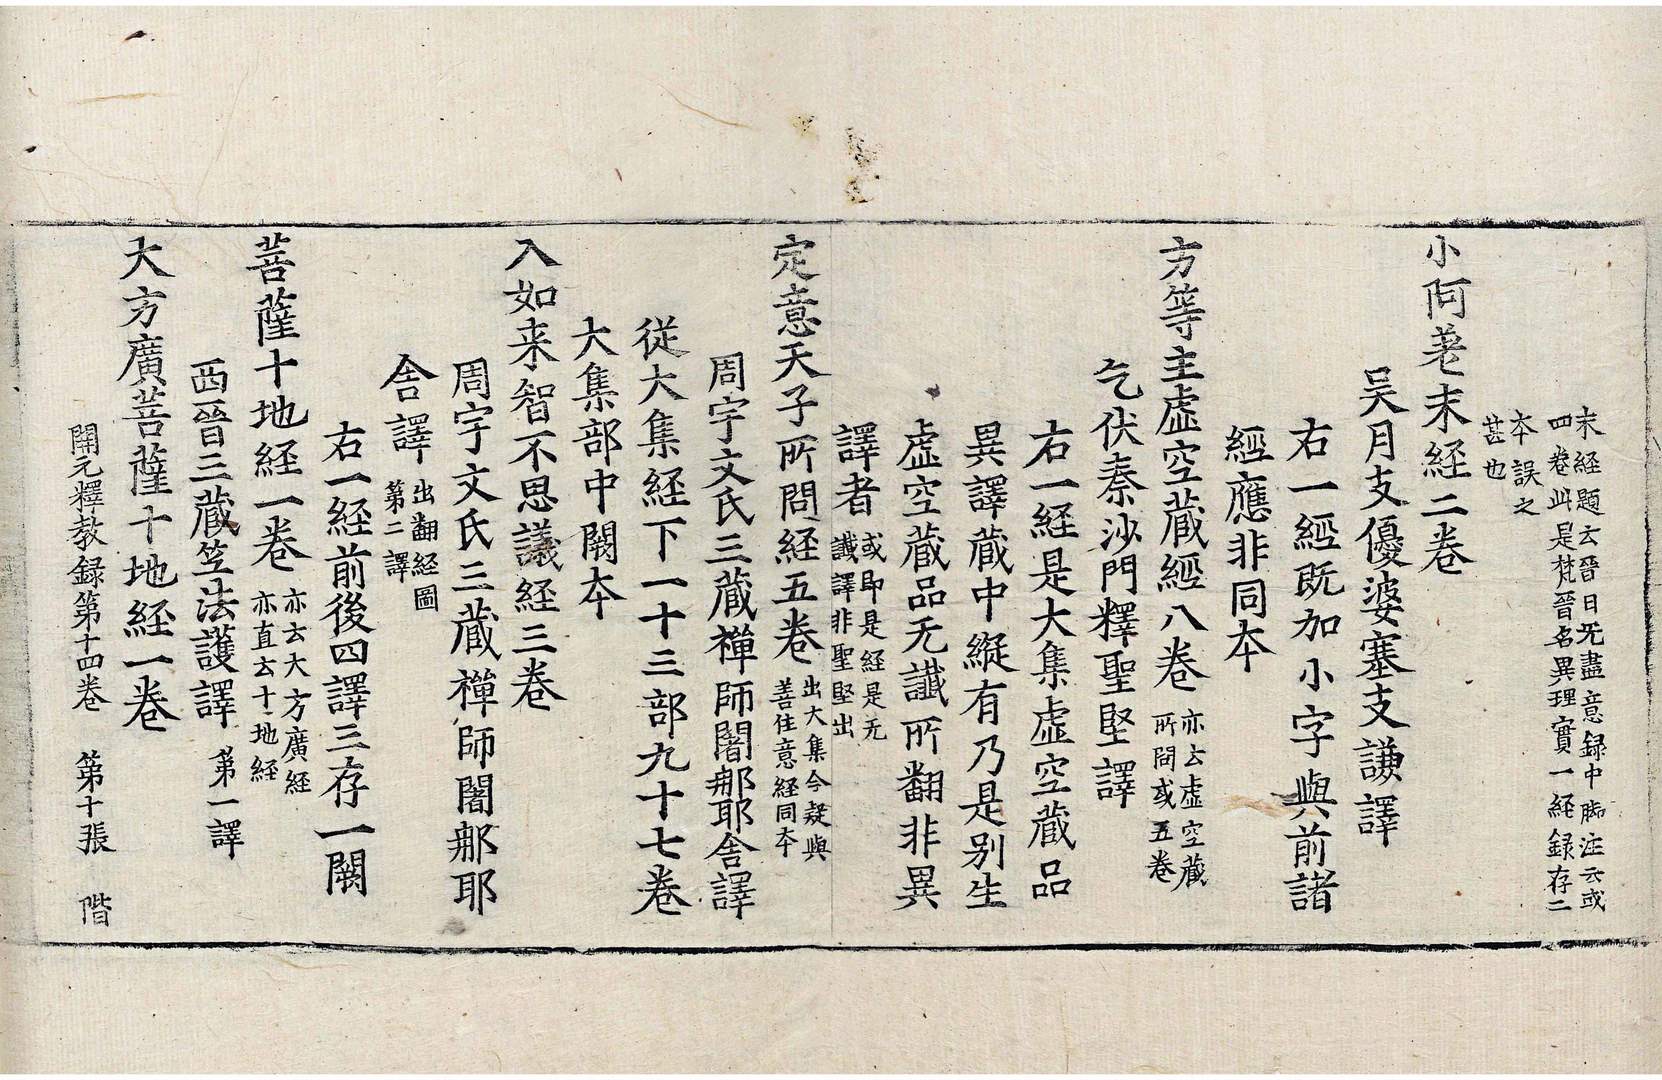 末経題云晉曰无盡意録中脚注云或
四卷此是梵晉名異理實一経録存二
夲誤之
甚也
小阿差末経二卷
吴月支優婆塞支謙譯
右一經既加小字與前諸
經應非同夲
方等主虛空藏經八卷
亦云虛空藏
所問或五卷
乞伏秦沙門釋聖堅譯
右一經是大集虛空藏品
異譯藏中縱有乃是别生
虛空藏品无讖所翻非異
譯者
或即是経是无
讖譯非聖堅出
定意天子所問経五卷
出大集今疑與
善住意経同夲
周宇文氏三藏禪師闍那耶舎譯
従大集経下一十三部九十七卷
大集部中闕夲
入如来智不思議経三卷
周宇文氏三藏禪師闍那耶
舎譯
出翻経圖
第二譯
右一経前後四譯三存一闕
菩薩十地経一卷
亦云大方廣経
亦直云十地経
西晉三藏竺法護譯
第一譯
大方廣菩薩十地経一卷
開元釋教録第十四卷 第十張 階